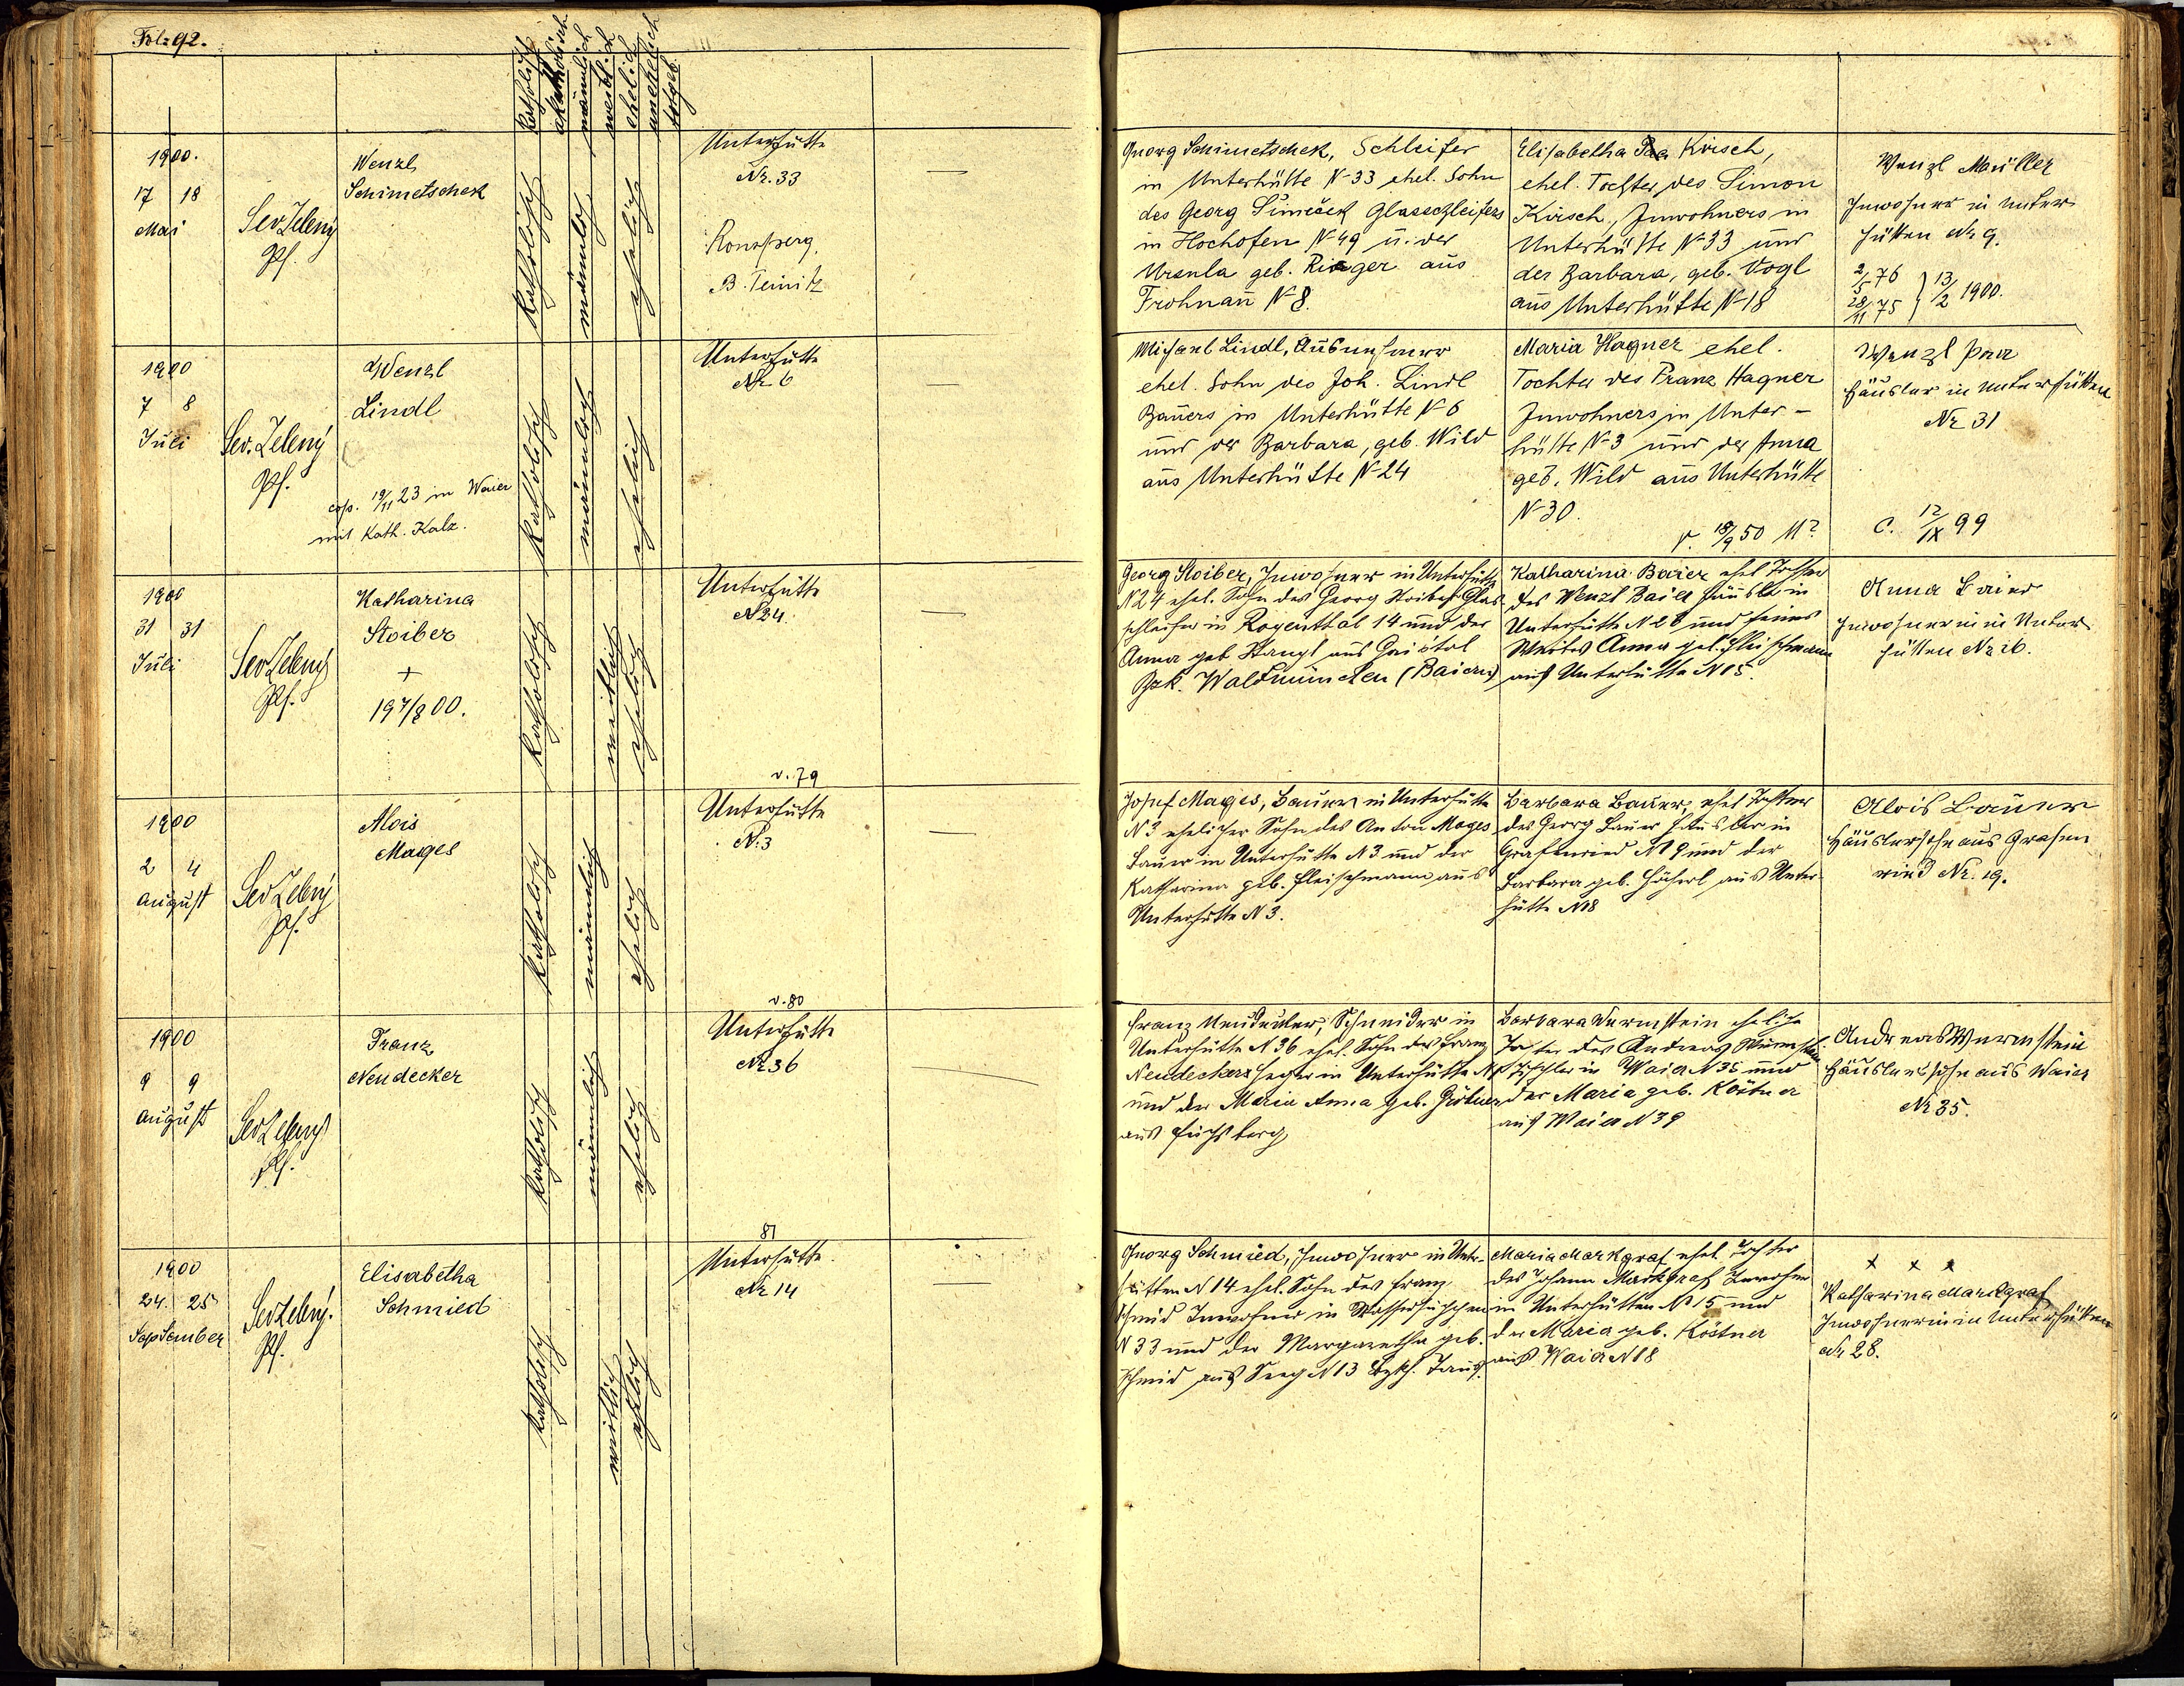 Fol. 92.
katholisch
akatholisch
männlich
weiblich
ehelich
unehelich
1900.
17 18
Mai
Sev Zelený
Pf.
Wenzl
Schimetschek
katholisch
männlich
ehelich
Unterhütte
Nr. 33
Ronsperg
B. Teinitz
Georg Schimetschek, Schleifer
in Unterhütte N 33 ehel. Sohn
des Georg Šimeček Glasschleifers
in Hochofen N 49 u. der
Ursula geb. Rieger aus
Frohnau N 8.
Elisabetha Kirsch,
ehel. Tochter des Simon
Kirsch, Inwohners in
Unterhütte N 33 und
der Barbara, geb. Vogl
aus Unterhütte N 18
Wenzl Müller
Inwohner in Unter
hütten Nr 9.
2/5 76
28/11 75 } 13/2 1900.
1900
7 8
Juli
Sev. Zelený
Pf.
Wenzl
Lindl
cop. 19/11 23 in Waier
mit Kath. Kalz.
katholisch
männlich
ehelich
Unterhütte
Nr. 6
Michael Lindl, Ausnehmer
ehel. Sohn des Joh. Lindl
Bauers in Unterhütte N 6
und der Barbara, geb. Wild
aus Unterhütte N 24
Maria Hagner ehel.
Tochter des Franz Hagner
Inwohners in Unter-
hütte N 3 und der Anna
geb. Wild aus Unterhütte
N 30.
Wenzl
Häusler in Unterhütten
Nr 31
C. 12/IX 99
1900
31 31
Juli
Sev Zelený
Pf.
Katharina
Stoiber
+
19 7/8 00.
katholisch
weiblich
ehelich
Unterhütte
N 24.
Georg Stoiber, Inwohner in Unterhütte
N 24 ehel. Sohn des Georg Stoiber Glas
schleifer in Rogenthal 14 und der
Anna geb Stangl aus Gaistal
Bzk. Waldmünchen (Baiern)
Katharina Baier ehel Tochter
des Wenzl Baier Häusler in
Unterhütte N 28 und seines
Weibes Anna geb. Fleischmann
aus Unterhütte N 15.
Anna Baier
Inwohnerin in Unter
hütten Nr 16.
v. 79
1900
2 4
August
Sev Zelený
Pf.
Alois
Mages
katholisch
männlich
ehelich
Unterhütte
N. 3
Josef Mages, Bauer in Unterhütte
N 3 ehelicher Sohn des Anton Mages
Bauer in Unterhütte N 3 und der
Katharina geb. Fleischmann aus
Unterhütte N 3.
Barbara Bauer, ehel Tochter
des Georg Bauer Häusler in
Grafenried N 19 und der
Barbara geb. aus Unter
hütte N 18
Alois Bauer
Häuslersohn aus Grafen
ried Nr. 19.
v. 80
1900
9 9
August
Sev Zelený
Pf.
Franz
Neudecker
katholisch
männlich
ehelich
Unterhütte
Nr 36
Franz Neudecker, Schneider in
Unterhütte N 36 ehel. Sohn des Franz
Neudecker Heger in Unterhütte
und der Maria Anna geb.
aus Fuchsberg
Barbara Wurmstein eheliche
Tochter des Andreas Wurmstein
Tischler in Waier N 35 und
der Maria geb. Köstner
aus Waier N 39
Andreas Wurmstein
Häuslerssohn aus Waier
Nr 35.
81
1900
24. 25
September
Sev Zelený.
Pf.
Elisabetha
Schmied
katholisch
weiblich
ehelich
Unterhütte.
Nr 14
Georg Schmied, Inwohner in Unter-
hütten N 14 ehel. Sohn des Franz
Schmid Inwohner in
N 33 und der Margaretha geb.
Schmid aus Seeg N 13 Bzkh. Taus.
Maria Markgraf ehel Tochter
des Johann Markgraf Inwohner
in Unterhütten N 15 und
der Maria geb. Köstner
aus Waier N 18
x x x
Katharina Markgraf
Inwohnerin in Unterhütten
Nr 28.